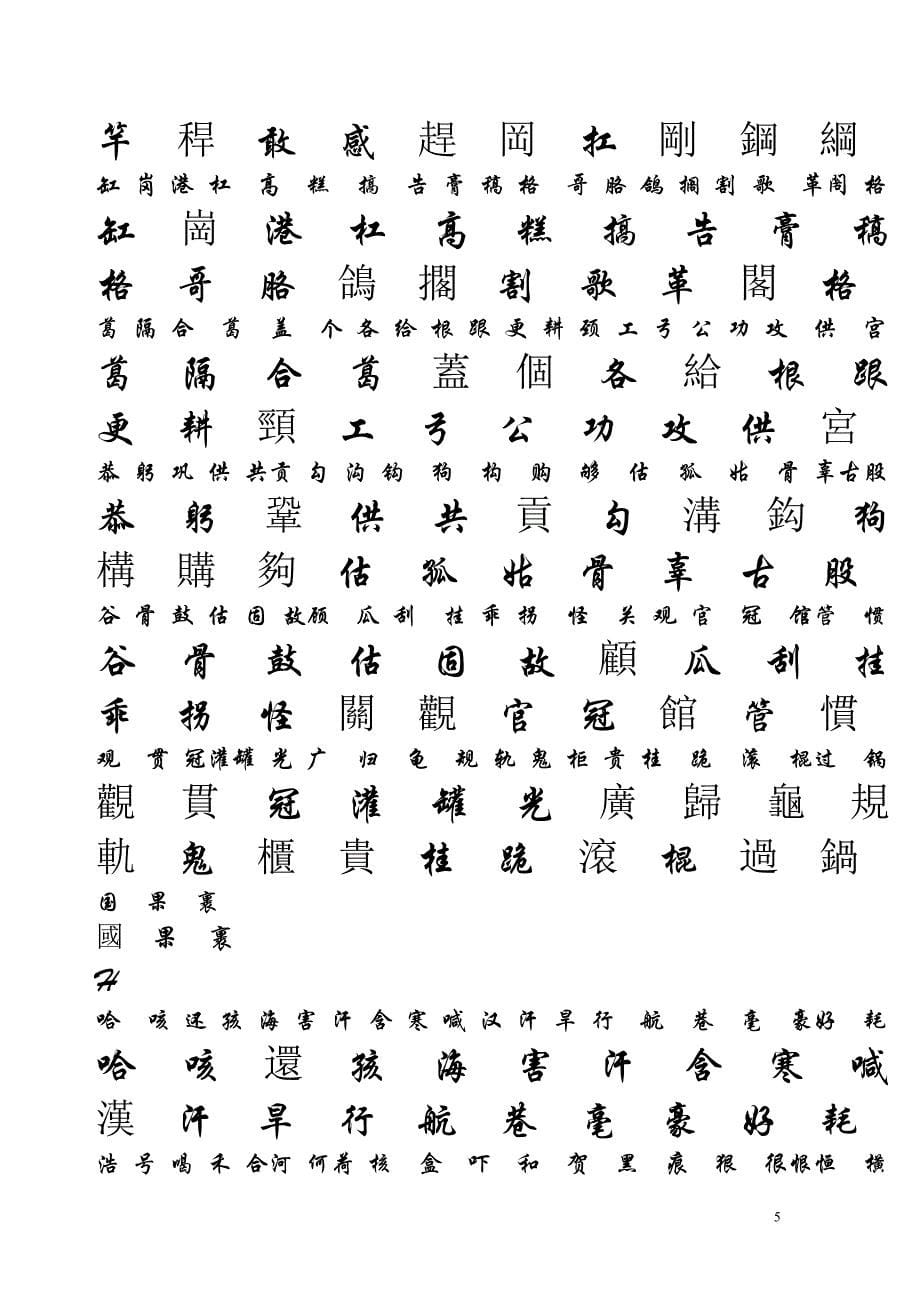 竿 稈 敢 感 趕 岡 扛 剛 鋼 綱
缸 岗 港 杠 高 糕 搞 告 膏 稿 格 哥 胳 鸽 搁 割 歌 革 阁 格
缸 崗 港 杠 高 糕 搞 告 膏 稿
格 哥 胳 鴿 擱 割 歌 革 閣 格
葛 隔 合 葛 盖 个 各 给 根 跟 更 耕 颈 工 弓 公 功 攻 供 宫
葛 隔 合 葛 蓋 個 各 給 根 跟
更 耕 頸 工 弓 公 功 攻 供 宮
恭 躬 巩 供 共 贡 勾 沟 钩 狗 构 购 够 估 孤 姑 骨 辜 古 股
恭 躬 鞏 供 共 貢 勾 溝 鈎 狗
構 購 夠 估 孤 姑 骨 辜 古 股
谷 骨 鼓 估 固 故 顾 瓜 刮 挂 乖 拐 怪 关 观 官 冠 馆 管 惯
谷 骨 鼓 估 固 故 顧 瓜 刮 挂
乖 拐 怪 關 觀 官 冠 館 管 慣
观 贯 冠 灌 罐 光 广 归 龟 规 轨 鬼 柜 贵 桂 跪 滚 棍 过 锅
觀 貫 冠 灌 罐 光 廣 歸 龜 規
軌 鬼 櫃 貴 桂 跪 滾 棍 過 鍋
国 果 裹
國 果 裹
H
哈 咳 还 孩 海 害 汗 含 寒 喊 汉 汗 旱 行 航 巷 毫 豪 好 耗
哈 咳 還 孩 海 害 汗 含 寒 喊
漢 汗 旱 行 航 巷 毫 豪 好 耗
浩 号 喝 禾 合 河 何 荷 核 盒 吓 和 贺 黑 痕 狠 很 恨 恒 横
5